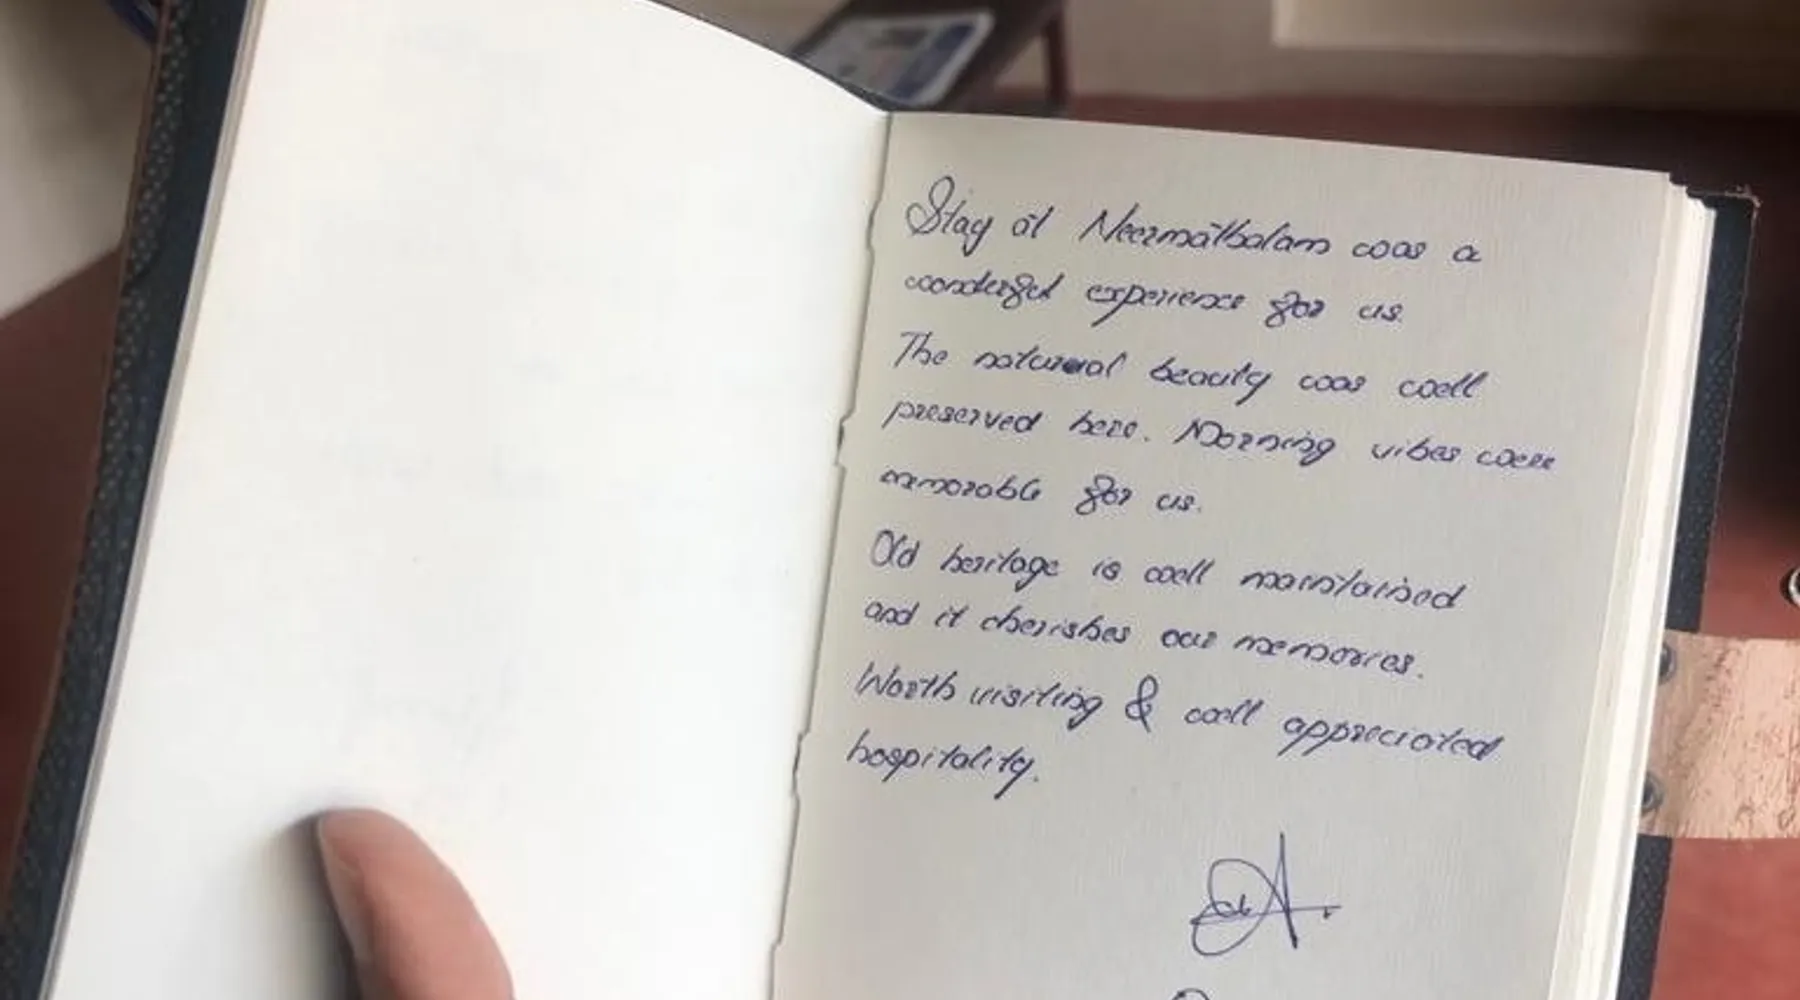 Stay at Neermathalam was a
wonderful experience for us.
The natural beauty was well
preserved here. Morning vibes were
memorable for us.
Old heritage is well maintained
and it cherishes our memories.
Worth visiting & well appreciated
hospitality.